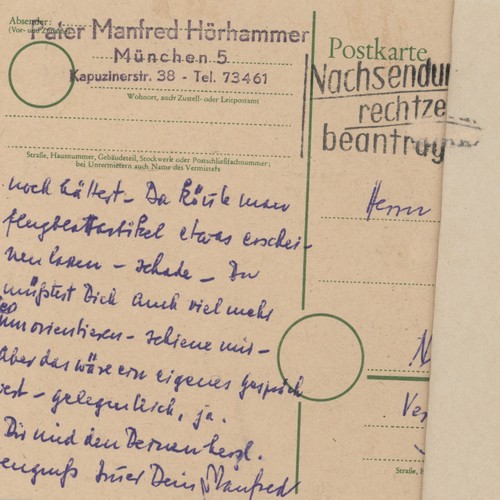 Absender:
(Vor- und Zuname)
Pater Manfred Hörhammer
München 5
Kapuzinerstr. 38 - Tel. 73461
Wohnort, auch Zustell- oder Leitpostamt
Straße, Hausnummer, Gebäudeteil, Stockwerk oder Postschließfachnummer;
bei Untermietern auch Name des Vermieters
noch hättest - Da könnte man
flugblattartikel etwas erschei-
nen lassen - schade - Du
müßtest Dich auch viel mehr
umorientieren - schiene mir -
Aber das wäre ein eigenes Gespräch
wert - gelegentlich, ja.
Dir und den Deinen herzl.
Dein Manfred
Postkarte
Nachsendu
rechtze
beantrag
Herrn
N
Ver
Straße, H